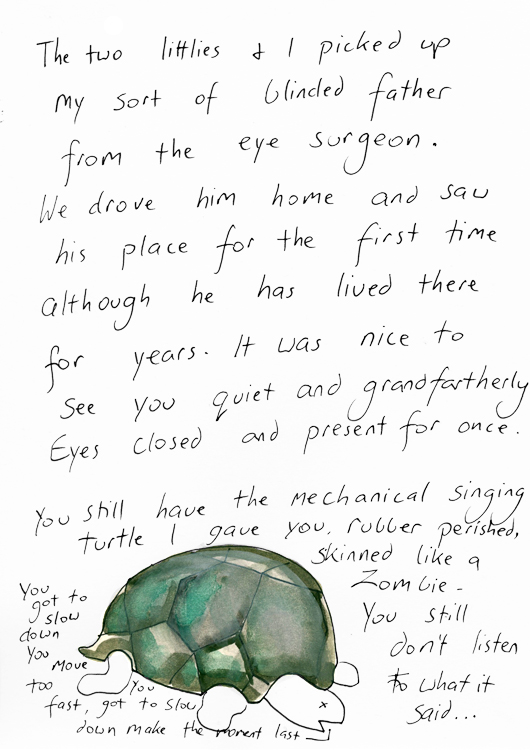 The two littlies & I picked up
my sort of blinded father
from the eye surgeon.
We drove him home and saw
his place for the first time
although he has lived there
for years. It was nice to
see you quiet and grandfartherly
Eyes closed and present for once.
You still have the mechanical singing
turtle I gave you. rubber perished,
skinned like a
Zombie -
You still
don't listen
to what it
said...
You
got to
slow
down
You
move
too
fast, got to slow
down make the moment last
You